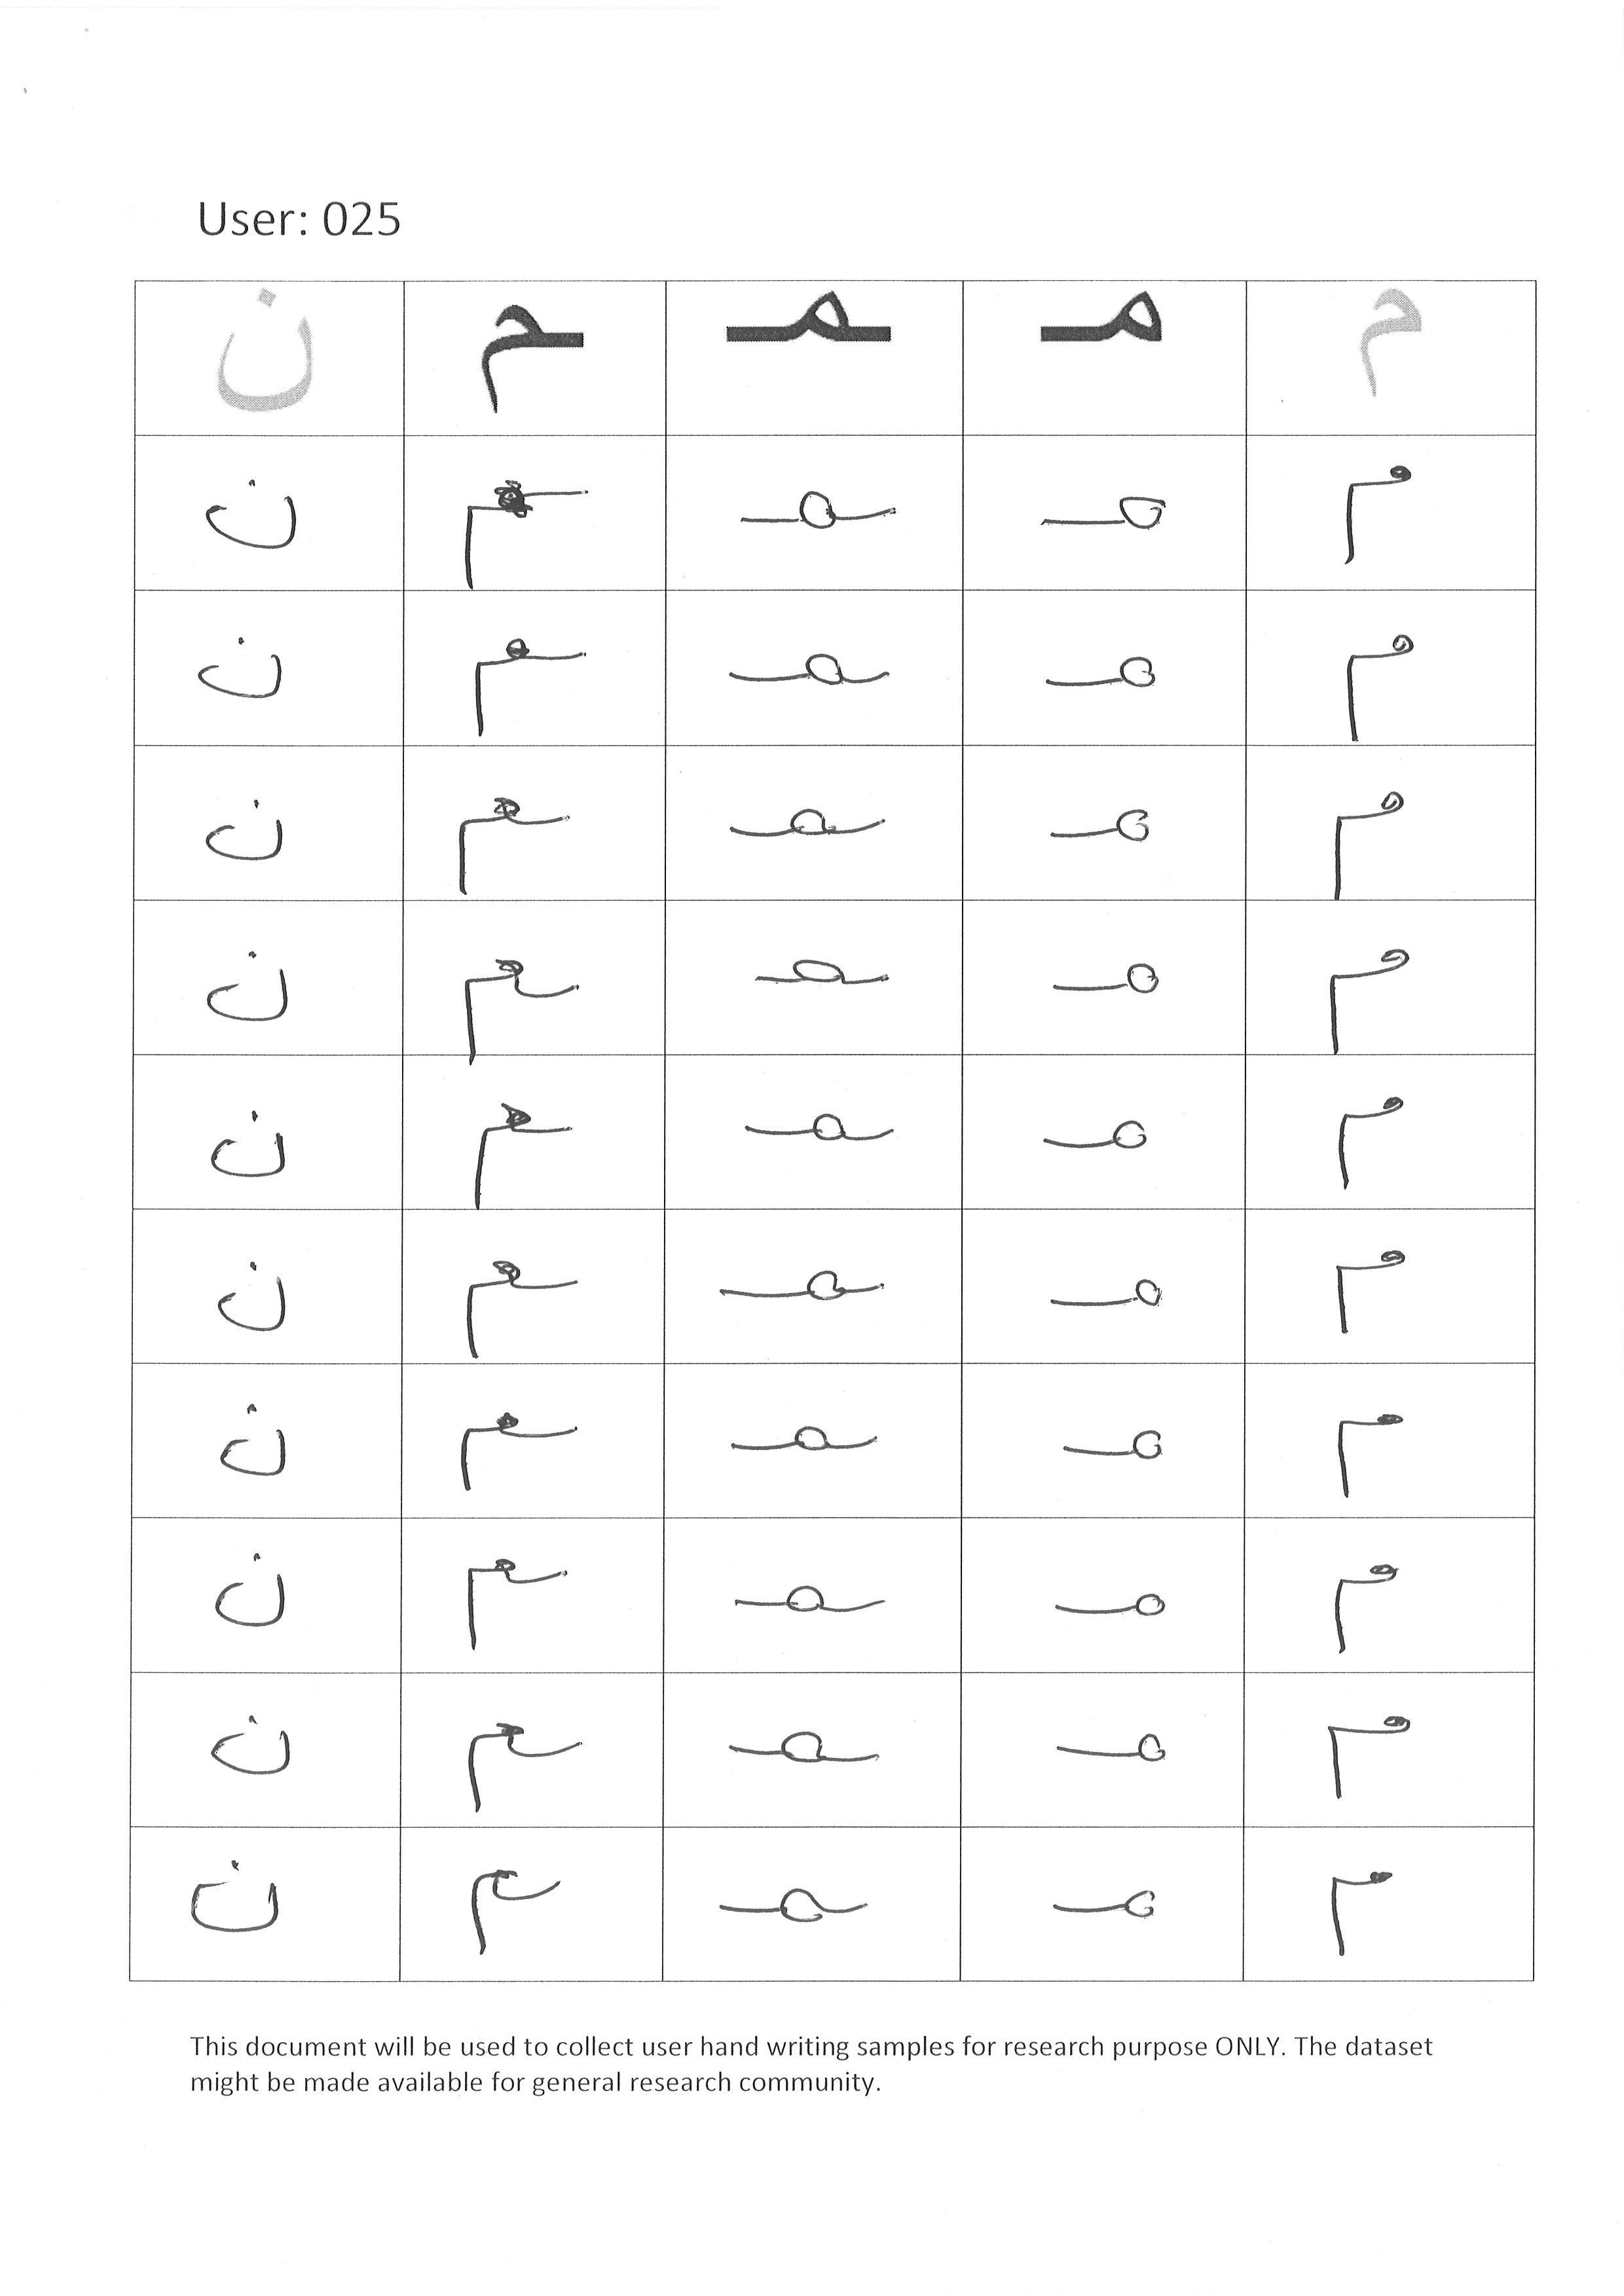 User: 025
م مـ ـمـ ـم ن
م مـ ـمـ ـم ن
م مـ ـمـ ـم ن
م مـ ـمـ ـم ن
م مـ ـمـ ـم ن
م مـ ـمـ ـم ن
م مـ ـمـ ـم ن
م مـ ـمـ ـم ن
م مـ ـمـ ـم ن
م مـ ـمـ ـم ن
م مـ ـمـ ـم ن
This document will be used to collect user hand writing samples for research purpose ONLY. The dataset
might be made available for general research community.